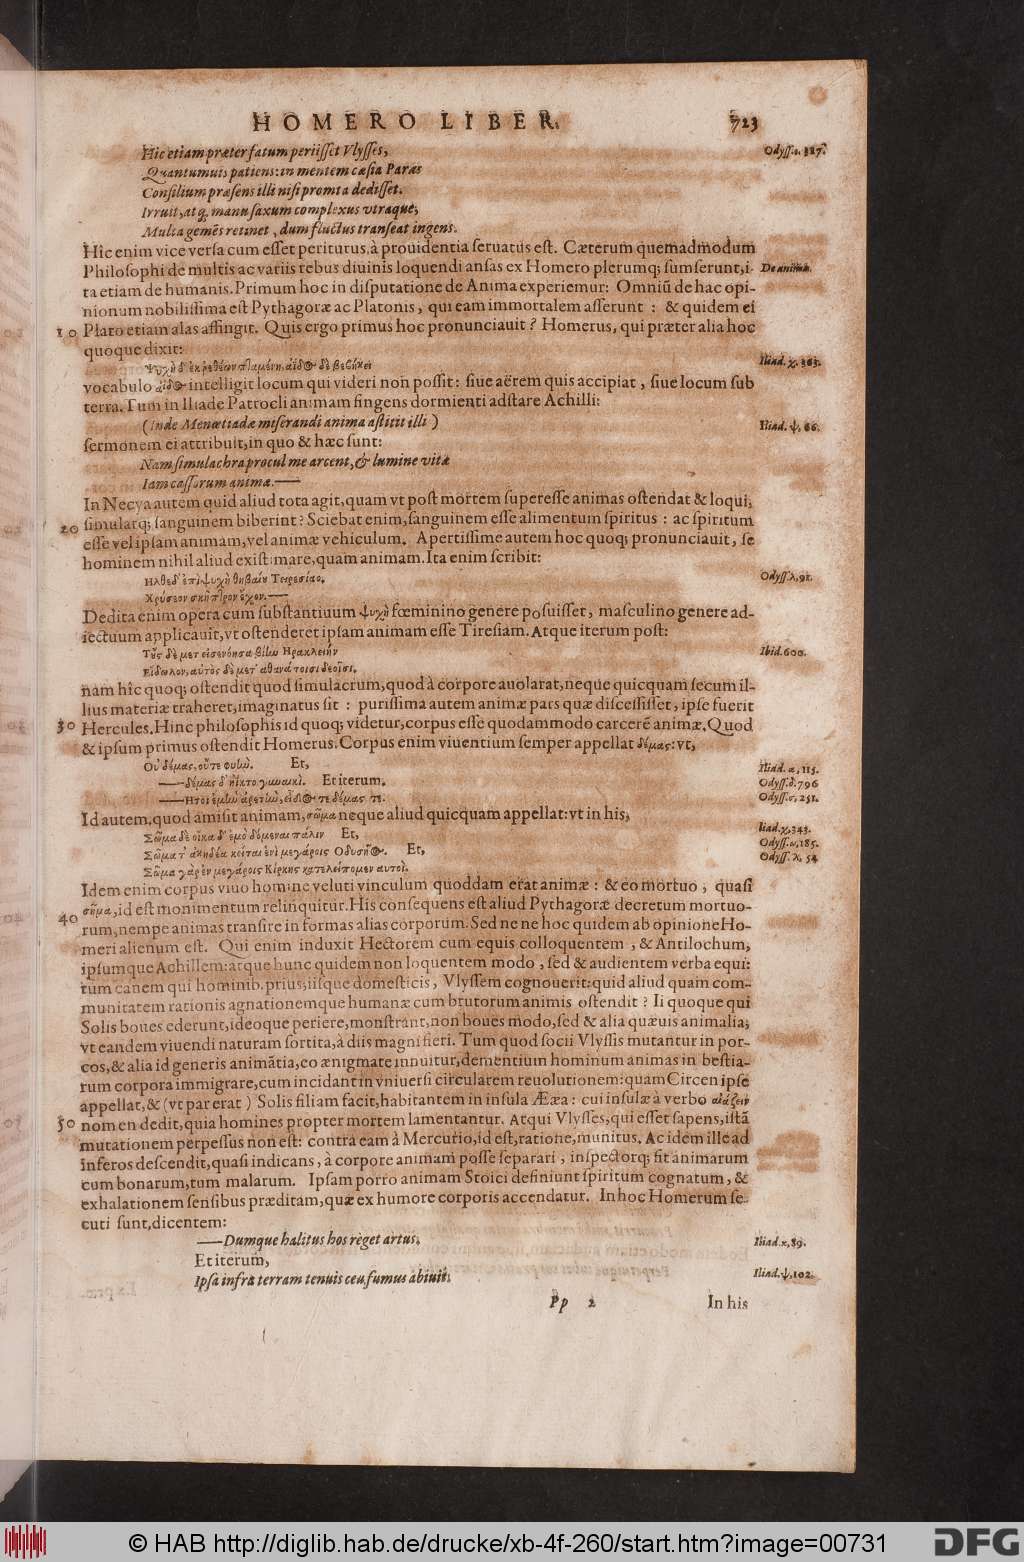 HOMERO LIBER. 723
Hic etiam præter fatum periisset Vlysses, Odyss. ε. 327.
Quantumuis patiens: in mentem cæsia Paras
Consilium præsens illi nisi promta dedisset.
Irruit, atq; manu saxum complexus vtraque,
Multa gemēs retinet, dum fluctus transeat ingens.
Hîc enim vice versa cum esset periturus, à prouidentia seruatus est. Cæterum quemadmodum
Philosophi de multis ac variis rebus diuinis loquendi ansas ex Homero plerumq; sumserunt, i- De anima.
ta etiam de humanis. Primum hoc in disputatione de Anima experiemur: Omniū de hac opi-
nionum nobilissima est Pythagoræ ac Platonis, qui eam immortalem asserunt: & quidem ei
10 Plato etiam alas affingit. Quis ergo primus hoc pronunciauit? Homerus, qui præter alia hoc
quoque dixit:
Ψυχὴ δ' ἐκ ῥεθέων πταμένη, ἀϊδὸς δὲ βεβήκει Iliad. χ. 363.
vocabulo ἀϊδὸς intelligit locum qui videri non possit: siue aërem quis accipiat, siue locum sub
terra. Tum in Iliade Patrocli animam fingens dormienti adstare Achilli:
(Inde Menœtiadæ miserandi anima astitit illi) Iliad. ψ. 66.
sermonem ei attribuit, in quo & hæc sunt:
Nam simulachra procul me arcent, & lumine vitæ
Iam cassorum animæ.——
In Necya autem quid aliud tota agit, quam vt post mortem superesse animas ostendat & loqui,
20 simulatq; sanguinem biberint? Sciebat enim, sanguinem esse alimentum spiritus: ac spiritum
esse vel ipsam animam, vel animæ vehiculum. Apertissime autem hoc quoq; pronunciauit, se
hominem nihil aliud existimare, quam animam. Ita enim scribit:
Ηλθε δ' ἐπὶ ψυχὴ θηβαίου Τειρεσίαο, Odyss. λ. 91.
Χρύσεον σκῆπτρον ἔχον.——
Dedita enim opera cum substantiuum ψυχὴ fœminino genere posuisset, masculino genere ad-
iectuum applicauit, vt ostenderet ipsam animam esse Tiresiam. Atque iterum post:
Τὸν δὲ μετ' εἰσενόησα βίην Ηρακλείην Ibid. 600.
Εἴδωλον, αὐτὸς δὲ μετ' ἀθανάτοισι θεοῖσι.
nam hîc quoq; ostendit quod simulacrum, quod à corpore auolarat, neque quicquam secum il-
lius materiæ traheret, imaginatus sit: purissima autem animæ pars quæ discessisset, ipse fuerit
30 Hercules. Hinc philosophis id quoq; videtur, corpus esse quodammodo carcerē animæ. Quod
& ipsum primus ostendit Homerus. Corpus enim viuentium semper appellat δέμας: vt,
Οὐ δέμας, οὔτε φυὴν. Et, Iliad. α, 115.
——δέμας δ' ἤϊκτο γυναικὶ. Et iterum, Odyss. δ. 796
——Ητοι ἐμὴν ἀρετὴν, εἶδός τε δέμας τε. Odyss. σ, 251.
Id autem, quod amisit animam, σῶμα neque aliud quicquam appellat: vt in his,
Σῶμα δὲ οἴκα δ' ἐμὸ δόμεναι πάλιν Et, Iliad. χ, 343.
Σώματ' ἀκηδέα κεῖται ἐνὶ μεγάροις Οδυσῆος. Et, Odyss. ω, 185.
Σῶμα γὰρ ἐν μεγάροις Κίρκης κατελείπομεν αὐτοὶ. Odyss. λ, 54
Idem enim corpus viuo homine veluti vinculum quoddam erat animæ: & eo mortuo, quasi
40 σῆμα, id est monimentum relinquitur. His consequens est aliud Pythagoræ decretum mortuo-
rum, nempe animas transire in formas alias corporum. Sed ne ne hoc quidem ab opinione Ho-
meri alienum est. Qui enim induxit Hectorem cum equis colloquentem, & Antilochum,
ipsumque Achillem: atque hunc quidem non loquentem modo, sed & audientem verba equi:
tum canem qui hominib. prius, iisque domesticis, Vlyssem cognouerit: quid aliud quam com-
munitatem rationis agnationemque humanæ cum brutorum animis ostendit? Ii quoque qui
Solis boues ederunt, ideoque periere, monstrant, non boues modo, sed & alia quæuis animalia,
vt eandem viuendi naturam sortita, à diis magni fieri. Tum quod socii Vlyssis mutantur in por-
cos, & alia id generis animātia, eo ænigmate innuitur, dementium hominum animas in bestia-
rum corpora immigrare, cum incidant in vniuersi circularem reuolutionem: quam Circen ipse
appellat, & (vt par erat) Solis filiam facit, habitantem in insula Ææa: cui insulæ à verbo αἰάζειν
50 nomen dedit, quia homines propter mortem lamentantur. Atqui Vlysses, qui esset sapens, istā
mutationem perpessus non est: contra eam à Mercurio, id est, ratione, munitus. Ac idem ille ad
inferos descendit, quasi indicans, à corpore animam posse separari, inspectorq; fit animarum
cum bonarum, tum malarum. Ipsam porro animam Stoici definiunt spiritum cognatum, &
exhalationem sensibus præditam, quæ ex humore corporis accendatur. In hoc Homerum se-
cuti sunt, dicentem:
——Dumque halitus hos reget artus, Iliad. κ, 89.
Et iterum,
Ipsa infra terram tenuis ceu fumus abiuit, Iliad. ψ, 102.
Pp 2 In his
© HAB http://diglib.hab.de/drucke/xb-4f-260/start.htm?image=00731 DFG